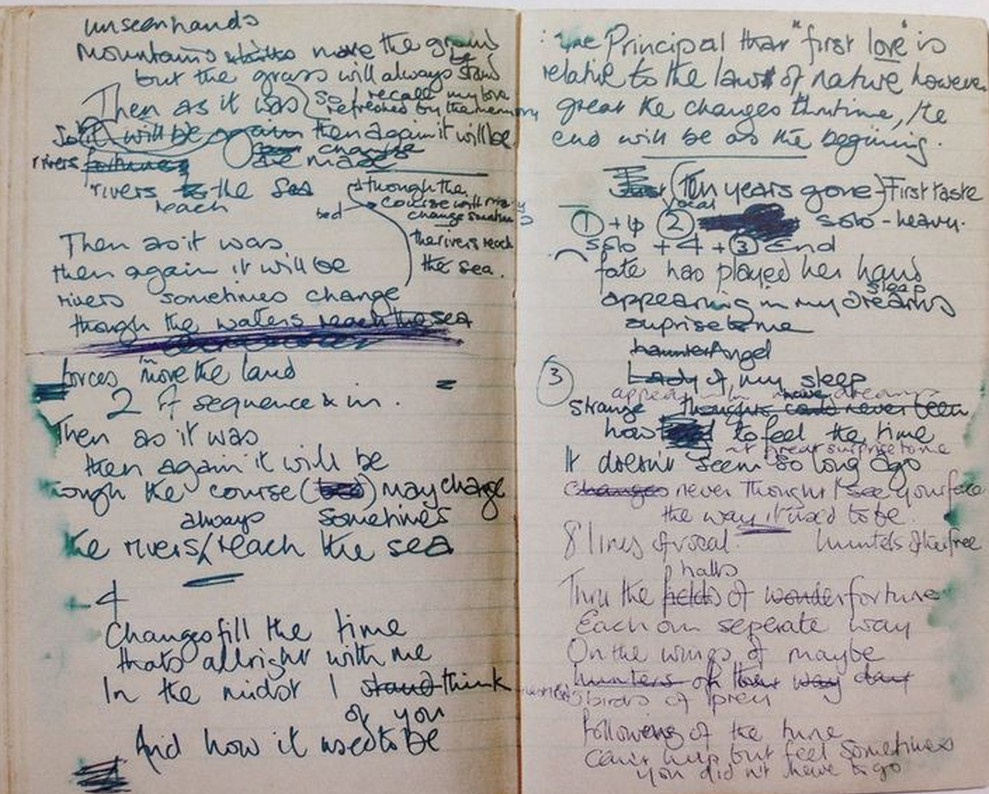 unseen hands
Mountains move the
but the grass will always
Then as it was so I recall my love
refreshed by the memory
So it will be again then again it will be
change
rivers fortunes
rivers to the Sea
reach
though the
course
bed
change sometimes
the rivers reach
the sea.
Then as it was
then again it will be
rivers sometimes change
though the waters reach the sea
forces move the land
2 of sequence & in.
Then as it was
then again it will be
though the course (bed) may change
always sometimes
the rivers reach the sea
4
Changes fill the time
thats allright with me
In the midst I stand think
of you
And how it used to be
: The Principal that "first love" is
relative to the laws of nature however
great the changes thru time, the
end will be as the beginning.
(Ten years gone) First taste
vocal
① + 4 ② solo - heavy.
solo + 4 + ③ end
fate has played her hand
sleep
appearing in my dreams
suprise to me
haunted Angel
③ Lady of my sleep
appear in dreams
strange thoughts could never been
how to feel the time
great surprise to me
It doesn't seem so long ago
changes never thought I see your face
the way it used to be.
8 lines of vocal. hunters of the free
halls
Thru the fields of wonder fortune
Each our seperate way
On the wings of maybe
hunters of their way day
birds of prey
following of the tune
Cant help but feel sometimes
you did n't have to go